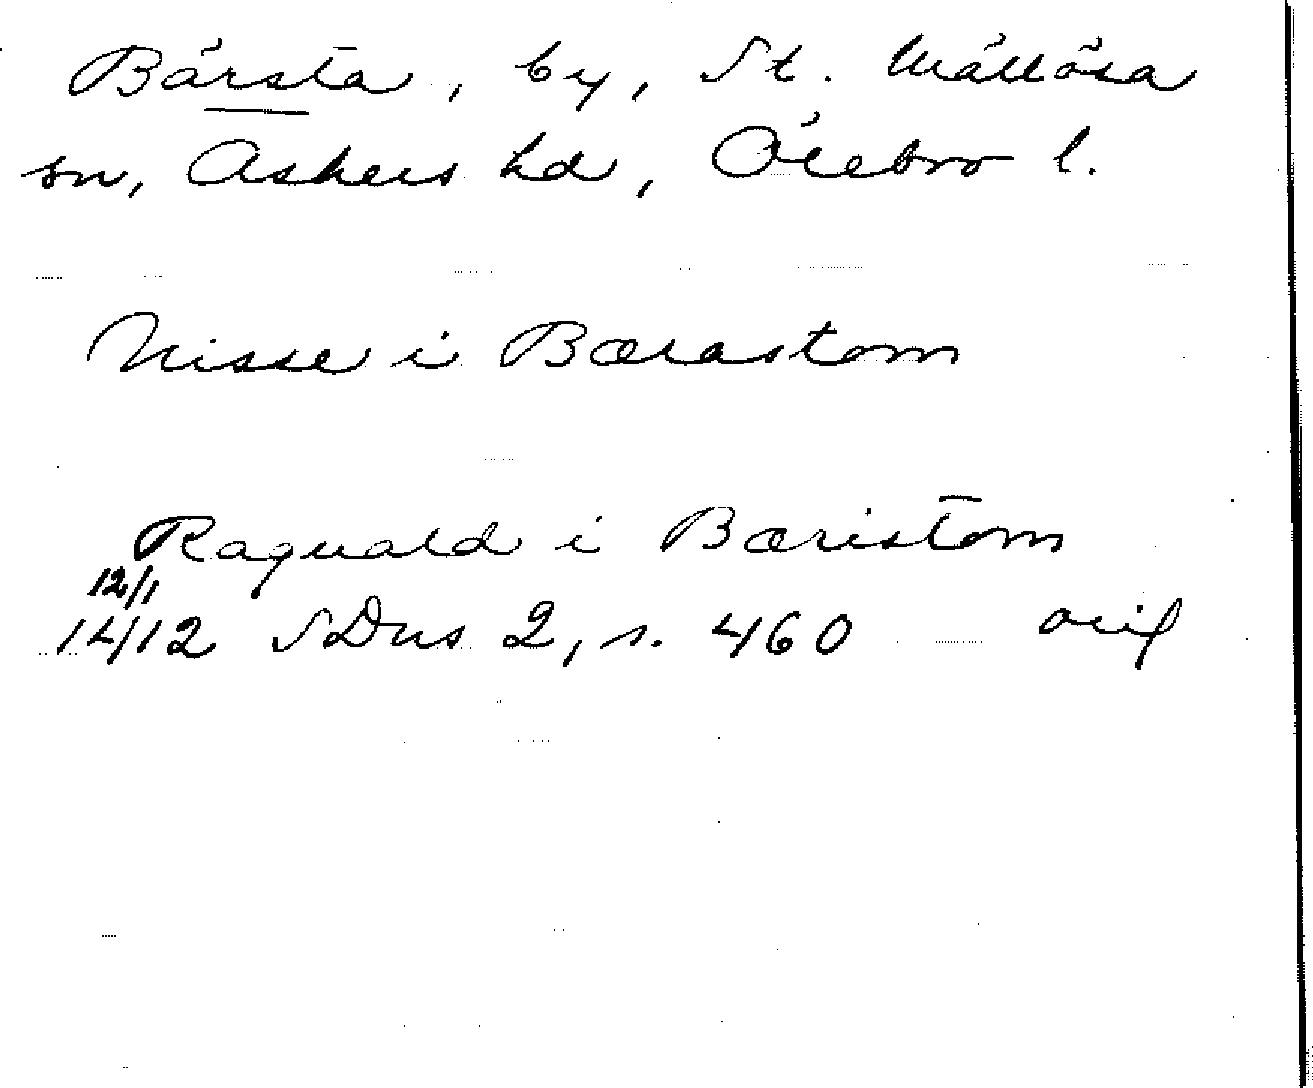 Bärsta, by, St. Mällösa
sn, Askers hd, Örebro l.
Nisse i Bærastom
Raguald i Bæristom
12/1
1412 SDns 2, s. 460 orig